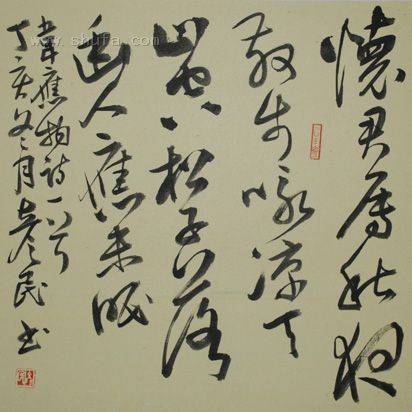 www.shufa.com
懷君属秋夜
散步咏凉天
山空松子落
幽人應未眠
韋應物詩一首
丁亥冬月民书